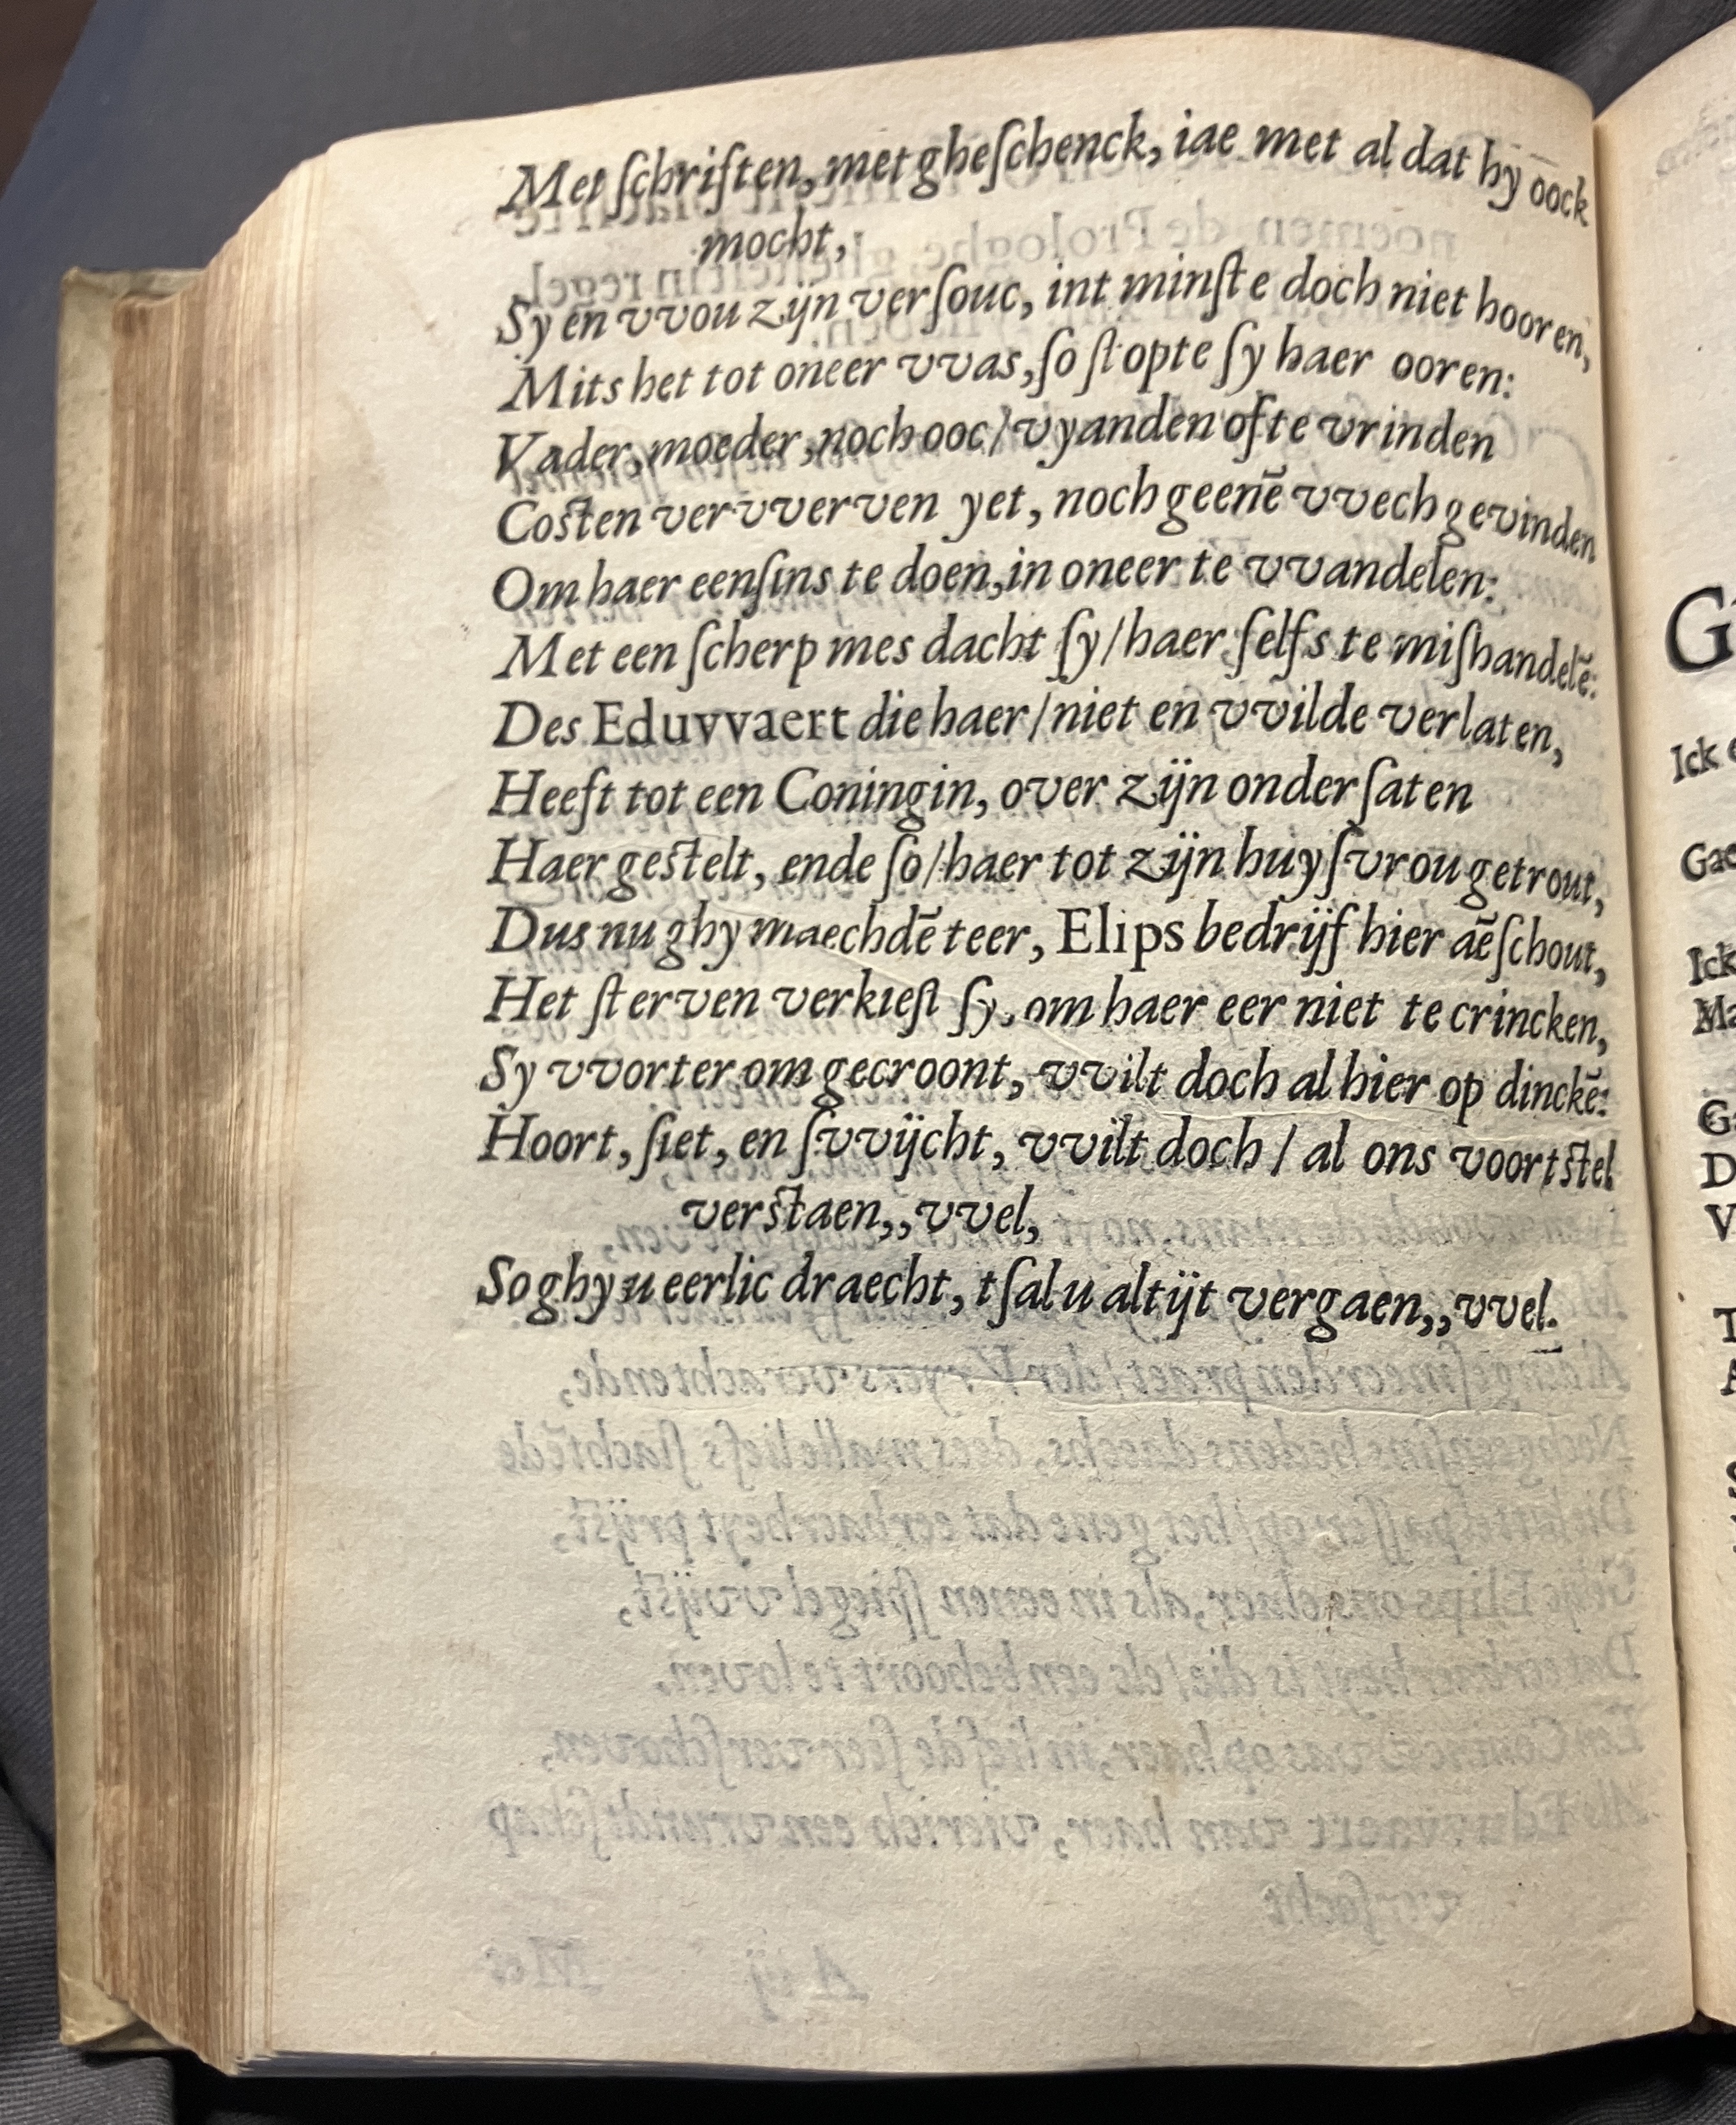 Met ſchriften, met gheſchenck, iae met al dat hy oock
mocht,
Sy en vvou zijn verſouc, int minſte doch niet hooren,
Mits het tot oneer vvas, ſo ſtopte ſy haer ooren:
Vader, moeder, noch ooc/ vyanden ofte vrinden
Coſten vervverven yet, noch geenē vvech gevinden
Om haer eenſins te doen, in oneer te vvandelen:
Met een ſcherp mes dacht ſy/ haer ſelfs te miſhandelē:
Des Eduvvaert die haer/ niet en vvilde verlaten,
Heeft tot een Coningin, over zijn onderſaten
Haer geſtelt, ende ſo/ haer tot zijn huyſvrou getrout,
Dus nu ghy maechdē teer, Elips bedrijf hier aēſchout,
Het ſterven verkieſt ſy, om haer eer niet te crincken,
Sy vvorter om gecroont, vvilt doch al hier op dinckē:
Hoort, ſiet, en ſvvijcht, vvilt doch / al ons voortſtel
verſtaen,, vvel,
So ghy u eerlic draecht, tſal u altijt vergaen,, vvel.
G
Ick
Gae
Ick
Ma
G
D
V
T
A